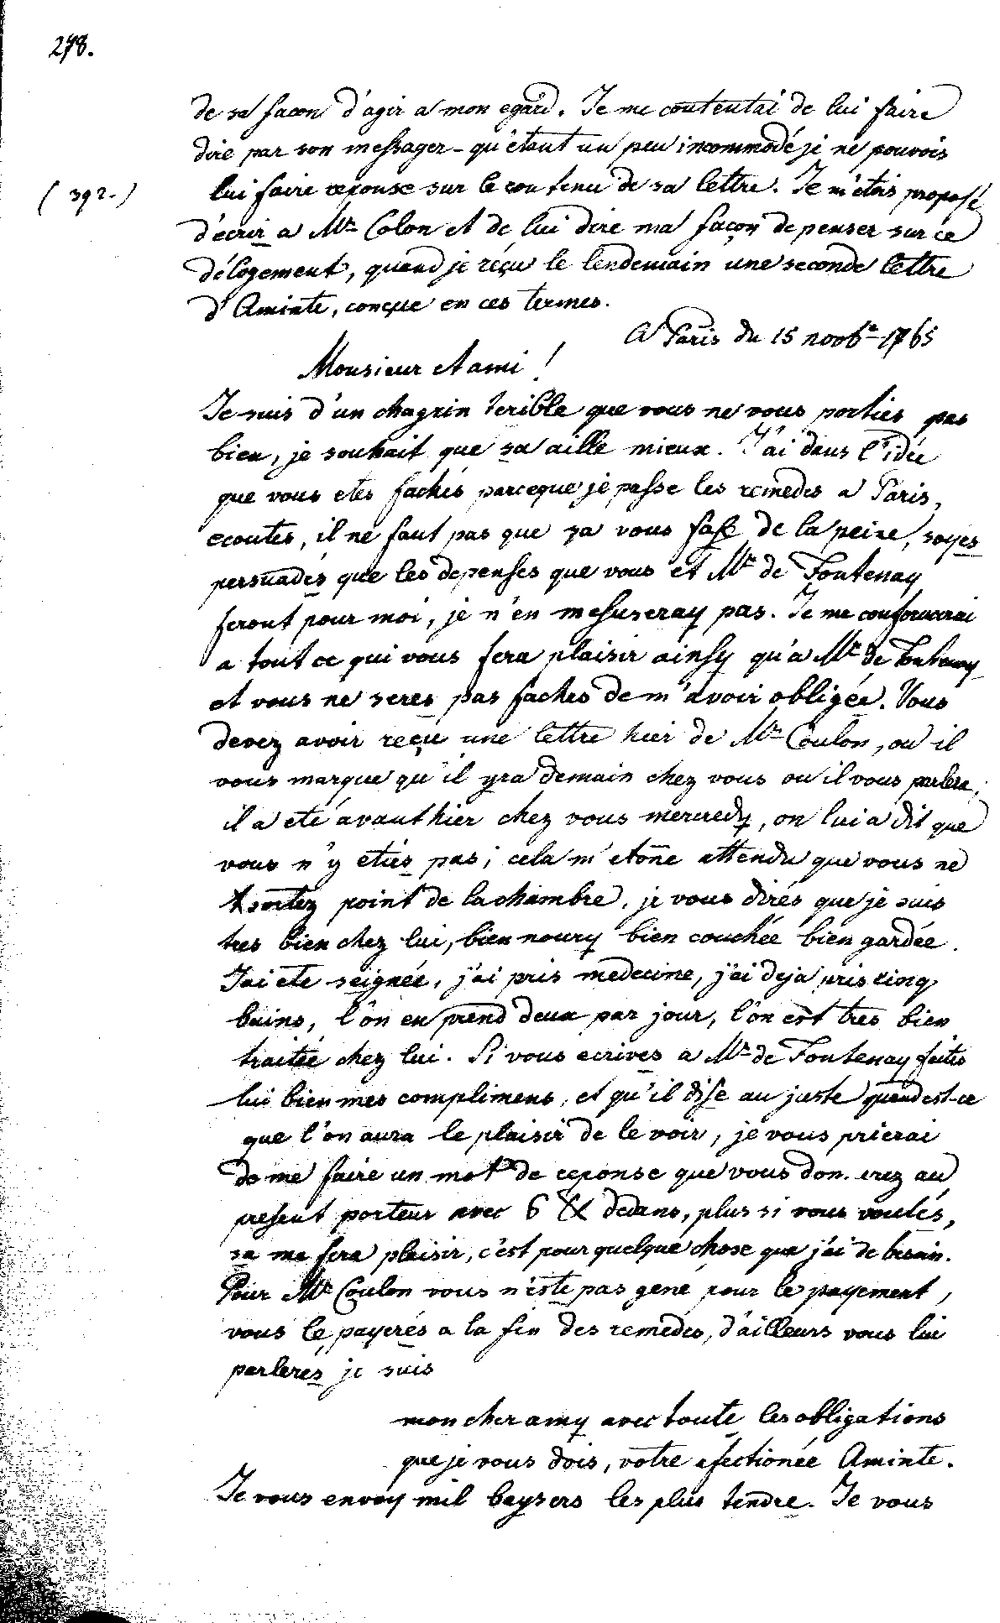 278.
de sa facon d'agir a mon egard. Je me contentai de lui faire
dire par son messager qu'étant un peu incommodé je ne pouvois
(392.)
lui faire reponse sur le contenu de sa lettre. Je m'étois proposé
d'écrir a Mr. Colon et de lui dire ma façon de penser sur ce
délogement, quand je réçu le lendemain une seconde lettre
d'Aminte, conçue en ces termes.
A Paris du 15 novbe. 1765
Monsieur et ami!
Je suis d'un chagrin terible que vous ne vous porties pas
bien, je souhait que sa aille mieux. J'ai dans l'idée
que vous etes fachés parceque je passe les remedes a Paris,
ecoutes, il ne faut pas que za vous fase de la peine, soyes
persuadés que les depenses que vous et Mr. de Fontenay
feront pour moi, je n'en mesuseray pas. Je me conformerai
a tout ce qui vous fera plaisir ainsy qu'a Mr. de Fontenay
et vous ne seres pas faches de m'avoir obligée. Vous
devez avoir reçu une lettre hier de Mr. Coulon, ou il
vous marque qu'il yra demain chez vous ou il vous parlera;
il a eté avanthier chez vous mercredy, on lui a dit que
vous n'y etiés pas; cela m'etone attendu que vous ne
sortez point de la chambre, je vous dirés que je suis
tres bien chez lui, bien noury bien couchée bien gardée.
J'ai ete seignée, j'ai pris medecine, j'ai deja pris cinq
bains, l'on en prend deux par jour, l'on est tres bien
traitée chez lui. Si vous ecrives a Mr. de Fontenay faites
lui bien mes complimens, et qu'il dise au juste quand est-ce
que l'on aura le plaisir de le voir, je vous prierai
de me faire un mot de reponse que vous donnerez au
present porteur avec 6 dedans, plus si vous voulés,
sa me fera plaisir, c'est pour quelque chose que j'ai de besoin.
Pour Mr. Coulon vous n'este pas gené pour le payement,
vous le payerés a la fin des remedes, d'ailleurs vous lui
parleres, je suis
mon cher amy avec toute les obligations
que je vous dois, votre afectionée Aminte.
Je vous envoy mil baysers les plus tendre. Je vous